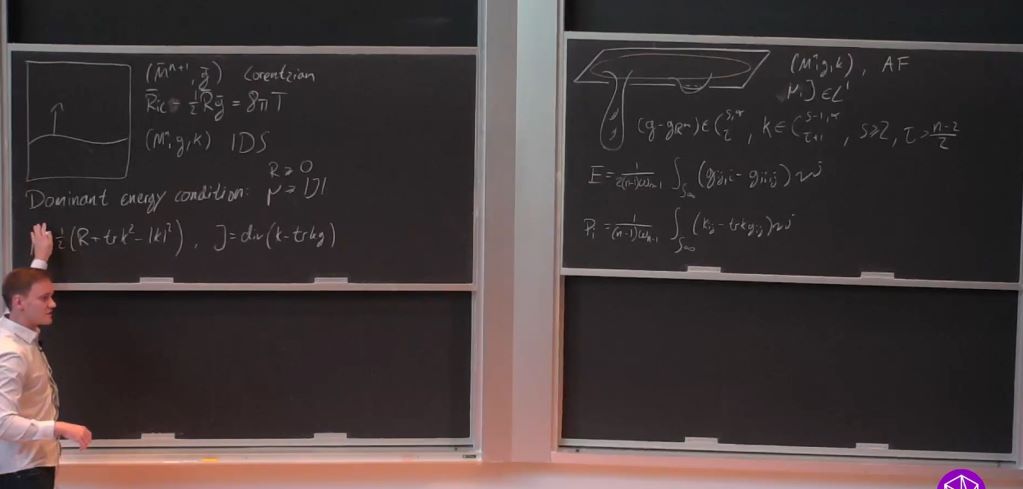 (M̄ⁿ⁺¹, ḡ) Lorentzian
R̄ic - ½R̄ḡ = 8πT
(Mⁿ, g, k) IDS
R ≥ 0
Dominant energy condition: μ ≥ |J|
½(R + trk² - |k|²), J = div(k - trkg)
(Mⁿ, g, k), AF
μ, J ∈ L¹
(g - g_ℝⁿ) ∈ C^{s,α}_τ, k ∈ C^{s-1,α}_{τ+1}, s ≥ 2, τ > (n-2)/2
E = 1/(2(n-1)ω_{n-1}) ∫_{S∞} (g_{ij,i} - g_{ii,j}) ν^j
P_i = 1/((n-1)ω_{n-1}) ∫_{S∞} (k_{ij} - trk g_{ij}) ν^j